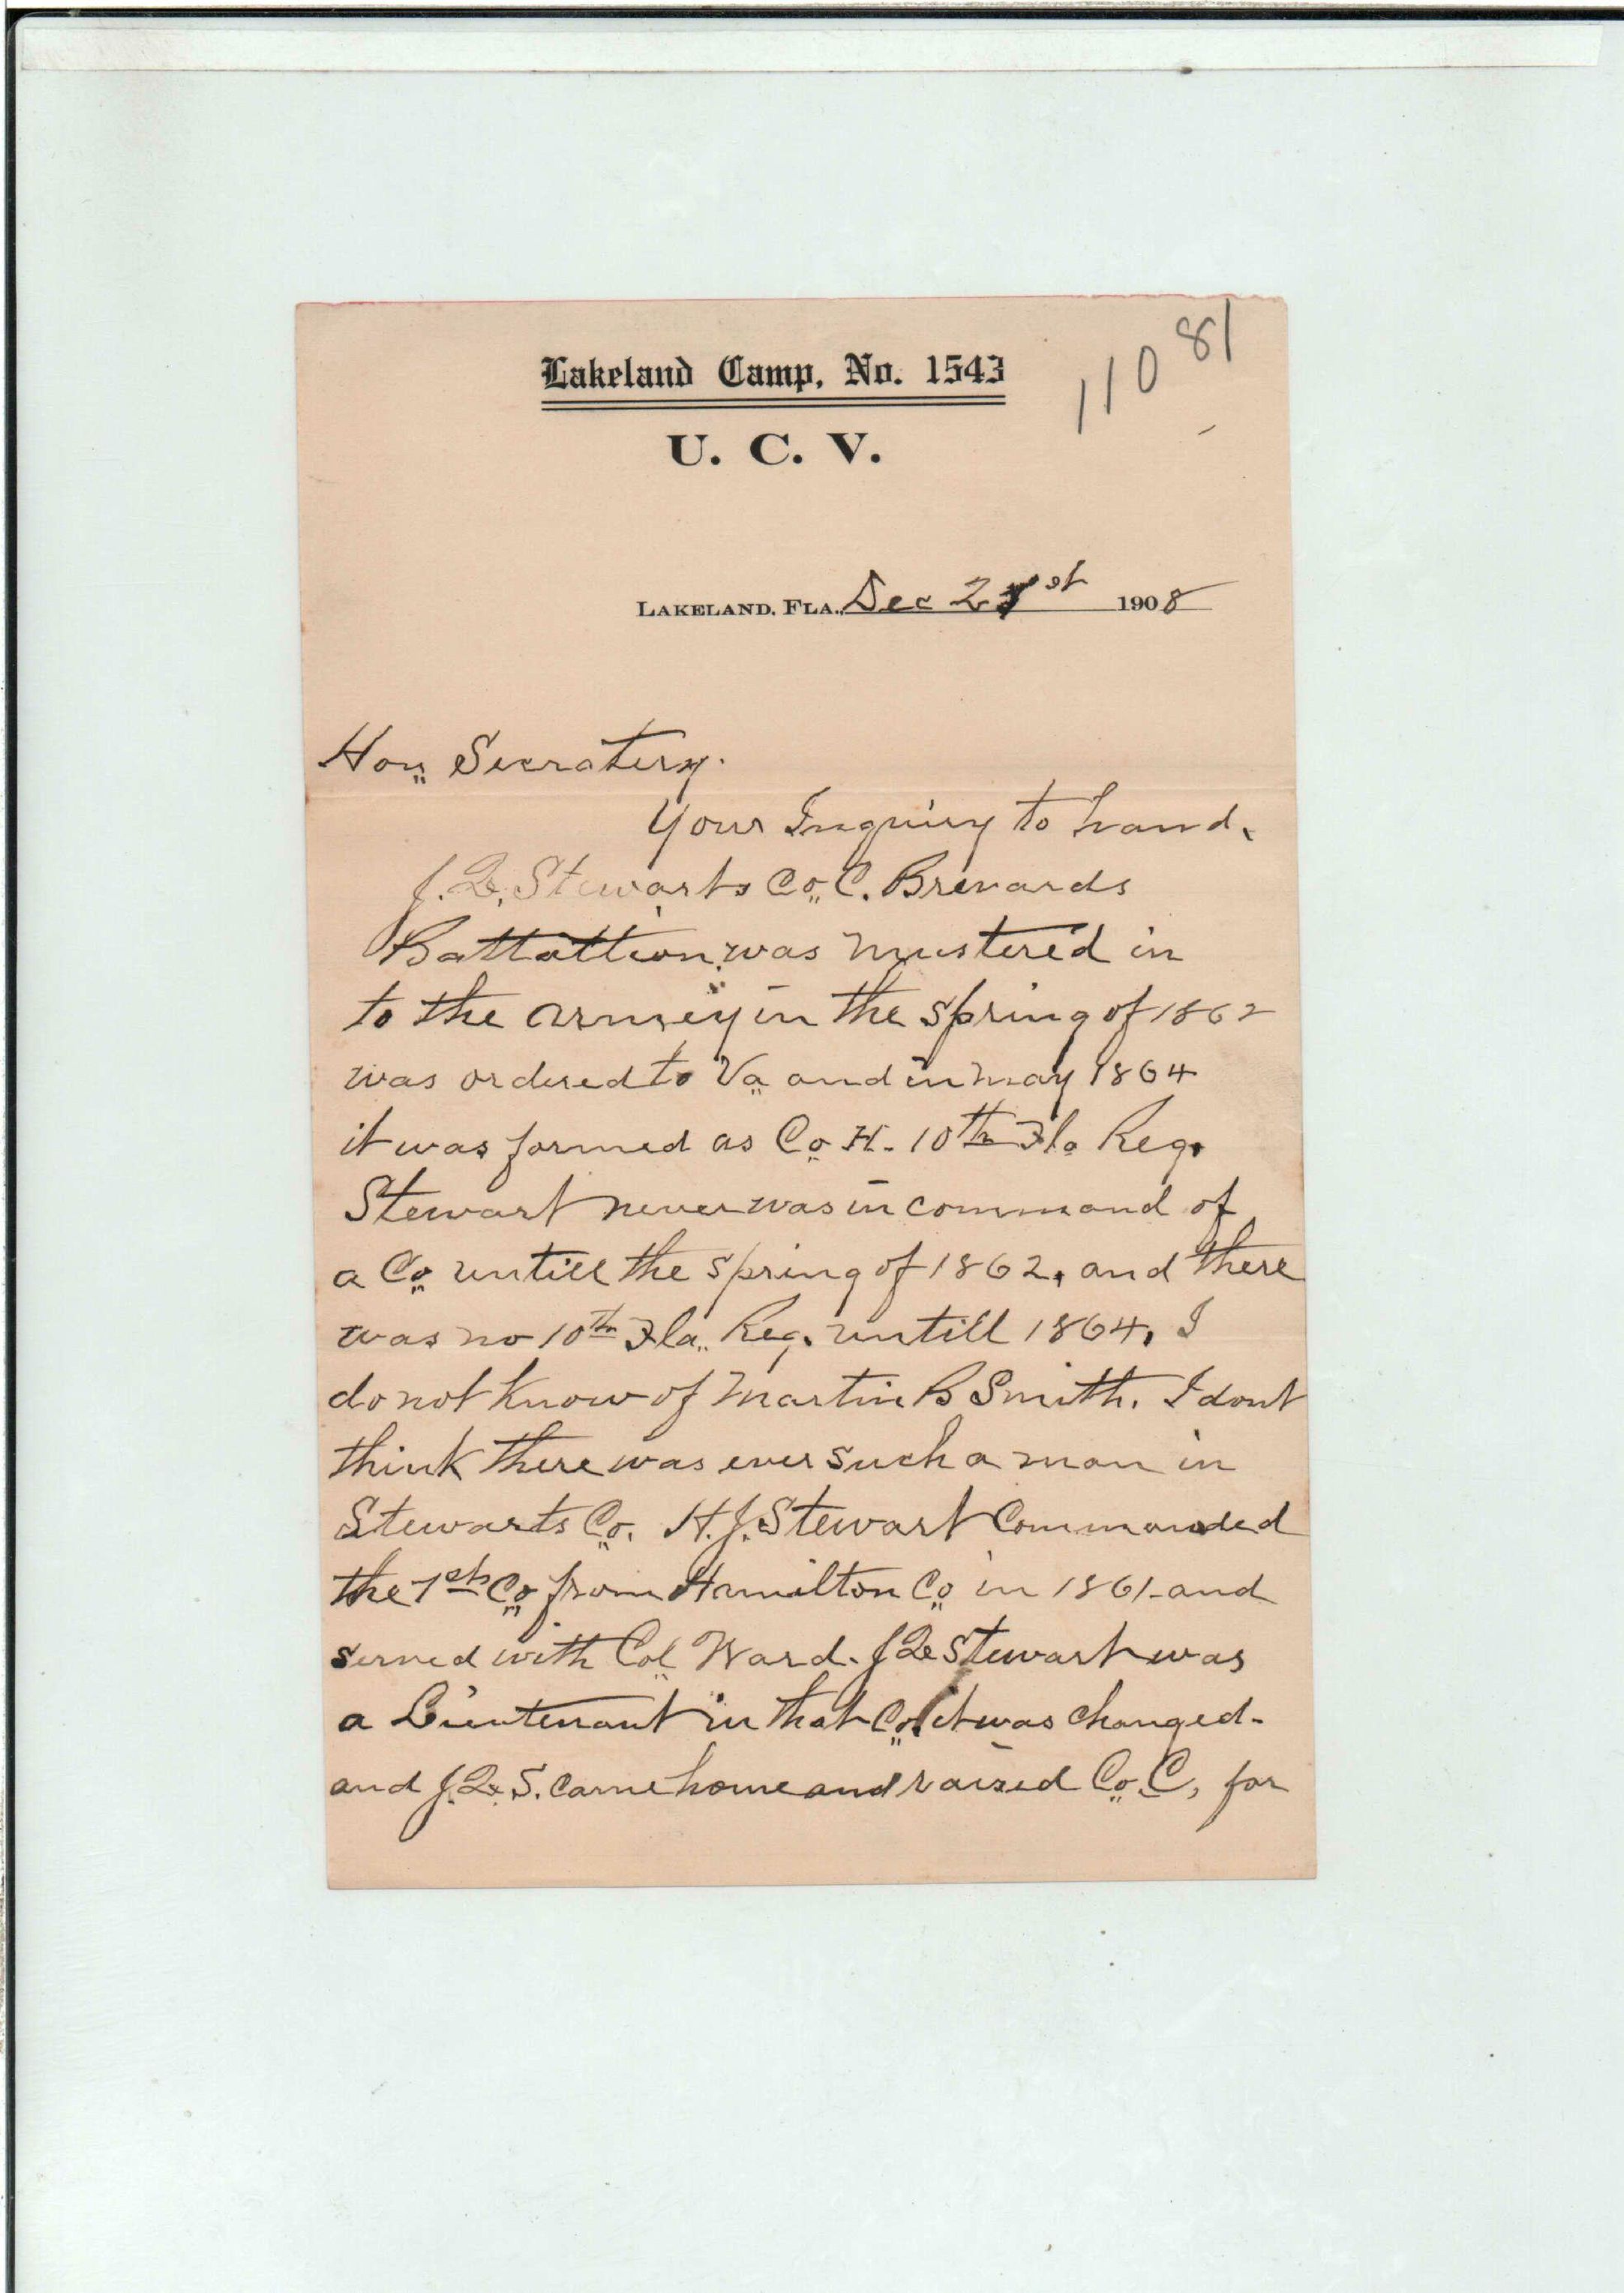 Lakeland Camp, No. 1543
11081
U. C. V.
LAKELAND, FLA., Dec 21st 1908
Hon. Secratery.
Your Inquiry to hand.
J. Q. Stewarts Co. C. Brevards
Battattion was mustered in
to the armey in the spring of 1862
was ordered to Va and in may 1864
it was formed as Co H. 10th Fla Reg.
Stewart never was in command of
a Co untill the spring of 1862, and there
was no 10th Fla. Reg. untill 1864. I
do not know of Martin B Smith. I dont
think there was ever such a man in
Stewarts Co. H. J. Stewart Commanded
the 1st Co from Hamilton Co in 1861 and
served with Col Ward. J Q Stewart was
a Lieutenant in that Co. it was changed-
and J. Q. S. came home and raised Co. C, for